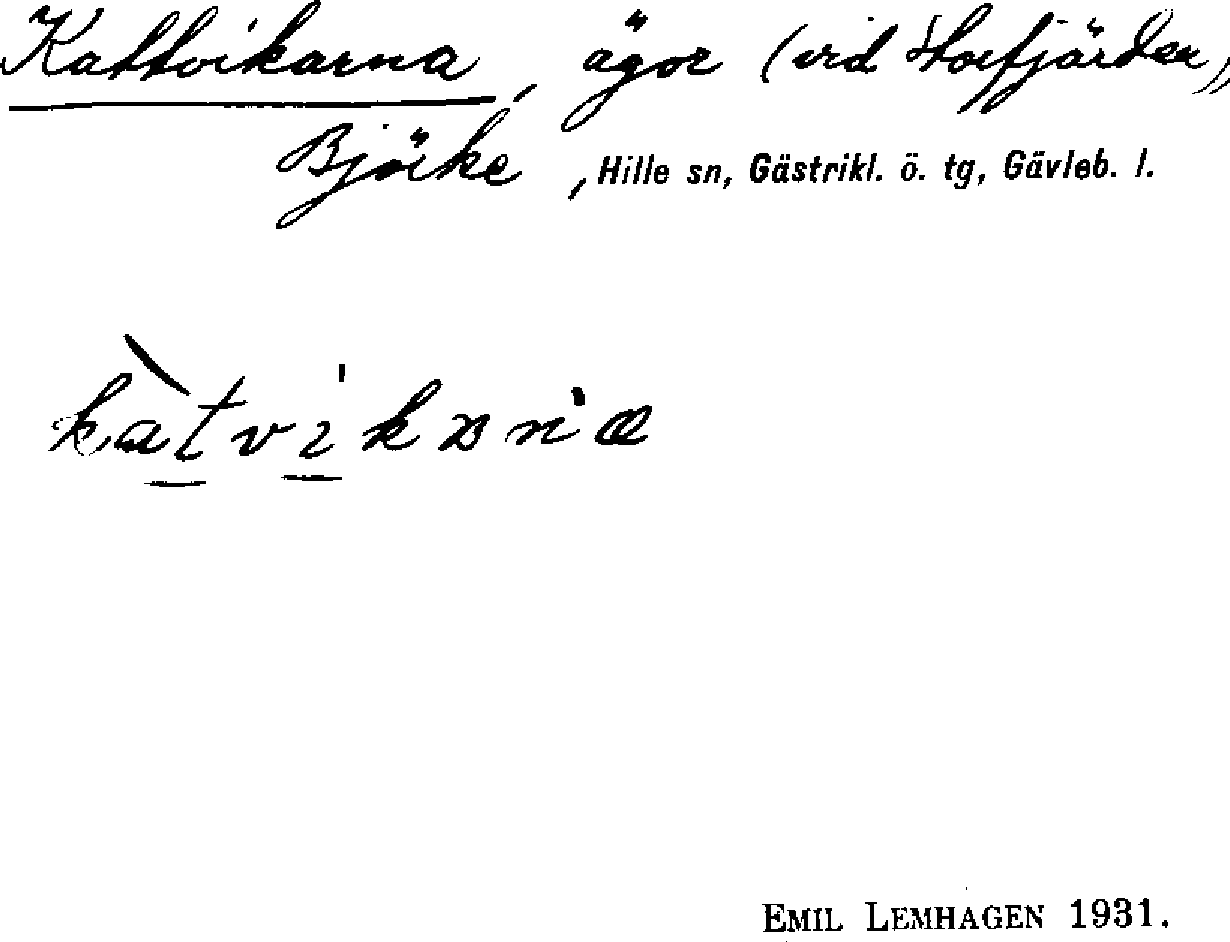 Kattvikarna, ägor (vid Storfjärden),
Björke, Hille sn, Gästrikl. ö. tg, Gävleb. l.
kàtvikɐṅɑ
EMIL LEMHAGEN 1931.